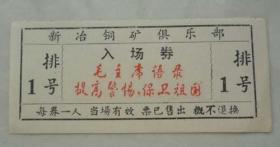 新冶铜矿俱乐部
排
1号
入场券
毛主席语录
提高警惕、保卫祖国
排
1号
每券一人 当场有效 票已售出 概不退换